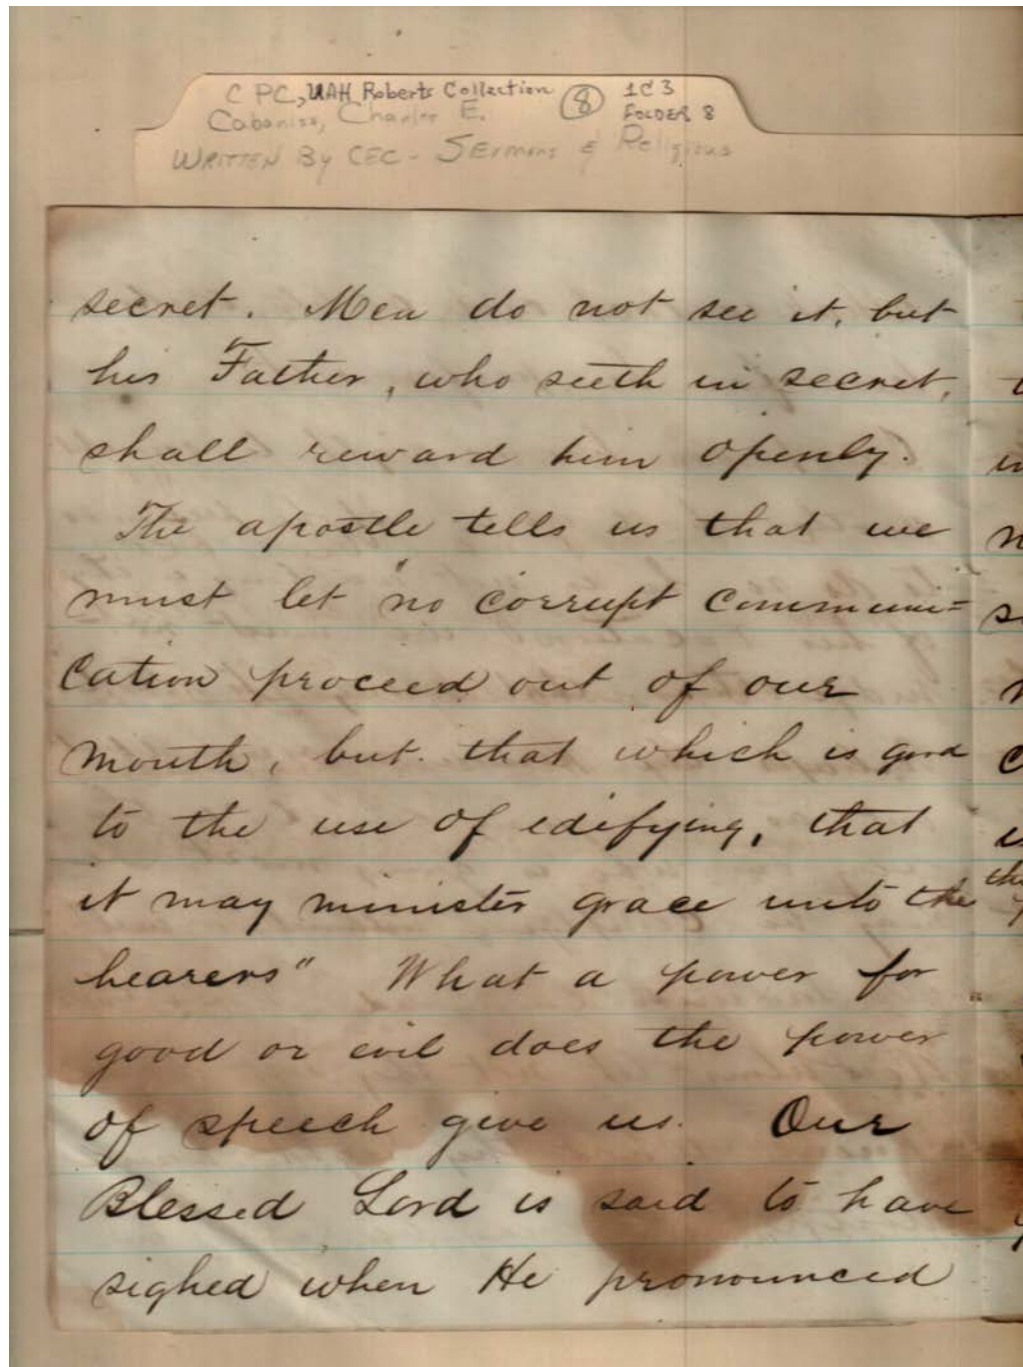 C PC, UAH Roberts Collection 8 1C3
Cabaniss, Charles E. FOLDER 8
WRITTEN By CEC - SERmons & Religious
secret. Men do not see it, but
his Father, who seeth in secret,
shall reward him openly.
The apostle tells us that we
must let "no corrupt communi=
cation proceed out of our
mouth, but that which is good
to the use of edifying, that
it may minister grace unto the
hearers" What a power for
good or evil does the power
of speech give us. Our
Blessed Lord is said to have
sighed when He pronounced